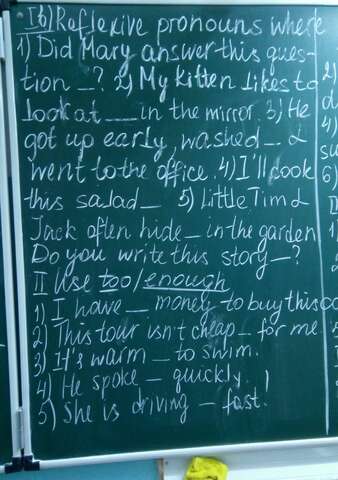 I b) Reflexive pronouns where
1) Did Mary answer this ques-
tion _? 2) My kitten likes to
look at __ in the mirror. 3) He
got up early, washed _ &
went to the office. 4) I'll cook
this salad _ 5) Little Tim &
Jack often hide _ in the garden
Do you write this story _?
II Use too/enough
1) I have _ money to buy this
2) This tour isn't cheap _ for me
3) It's warm _ to swim.
4) He spoke _ quickly.
5) She is driving _ fast!